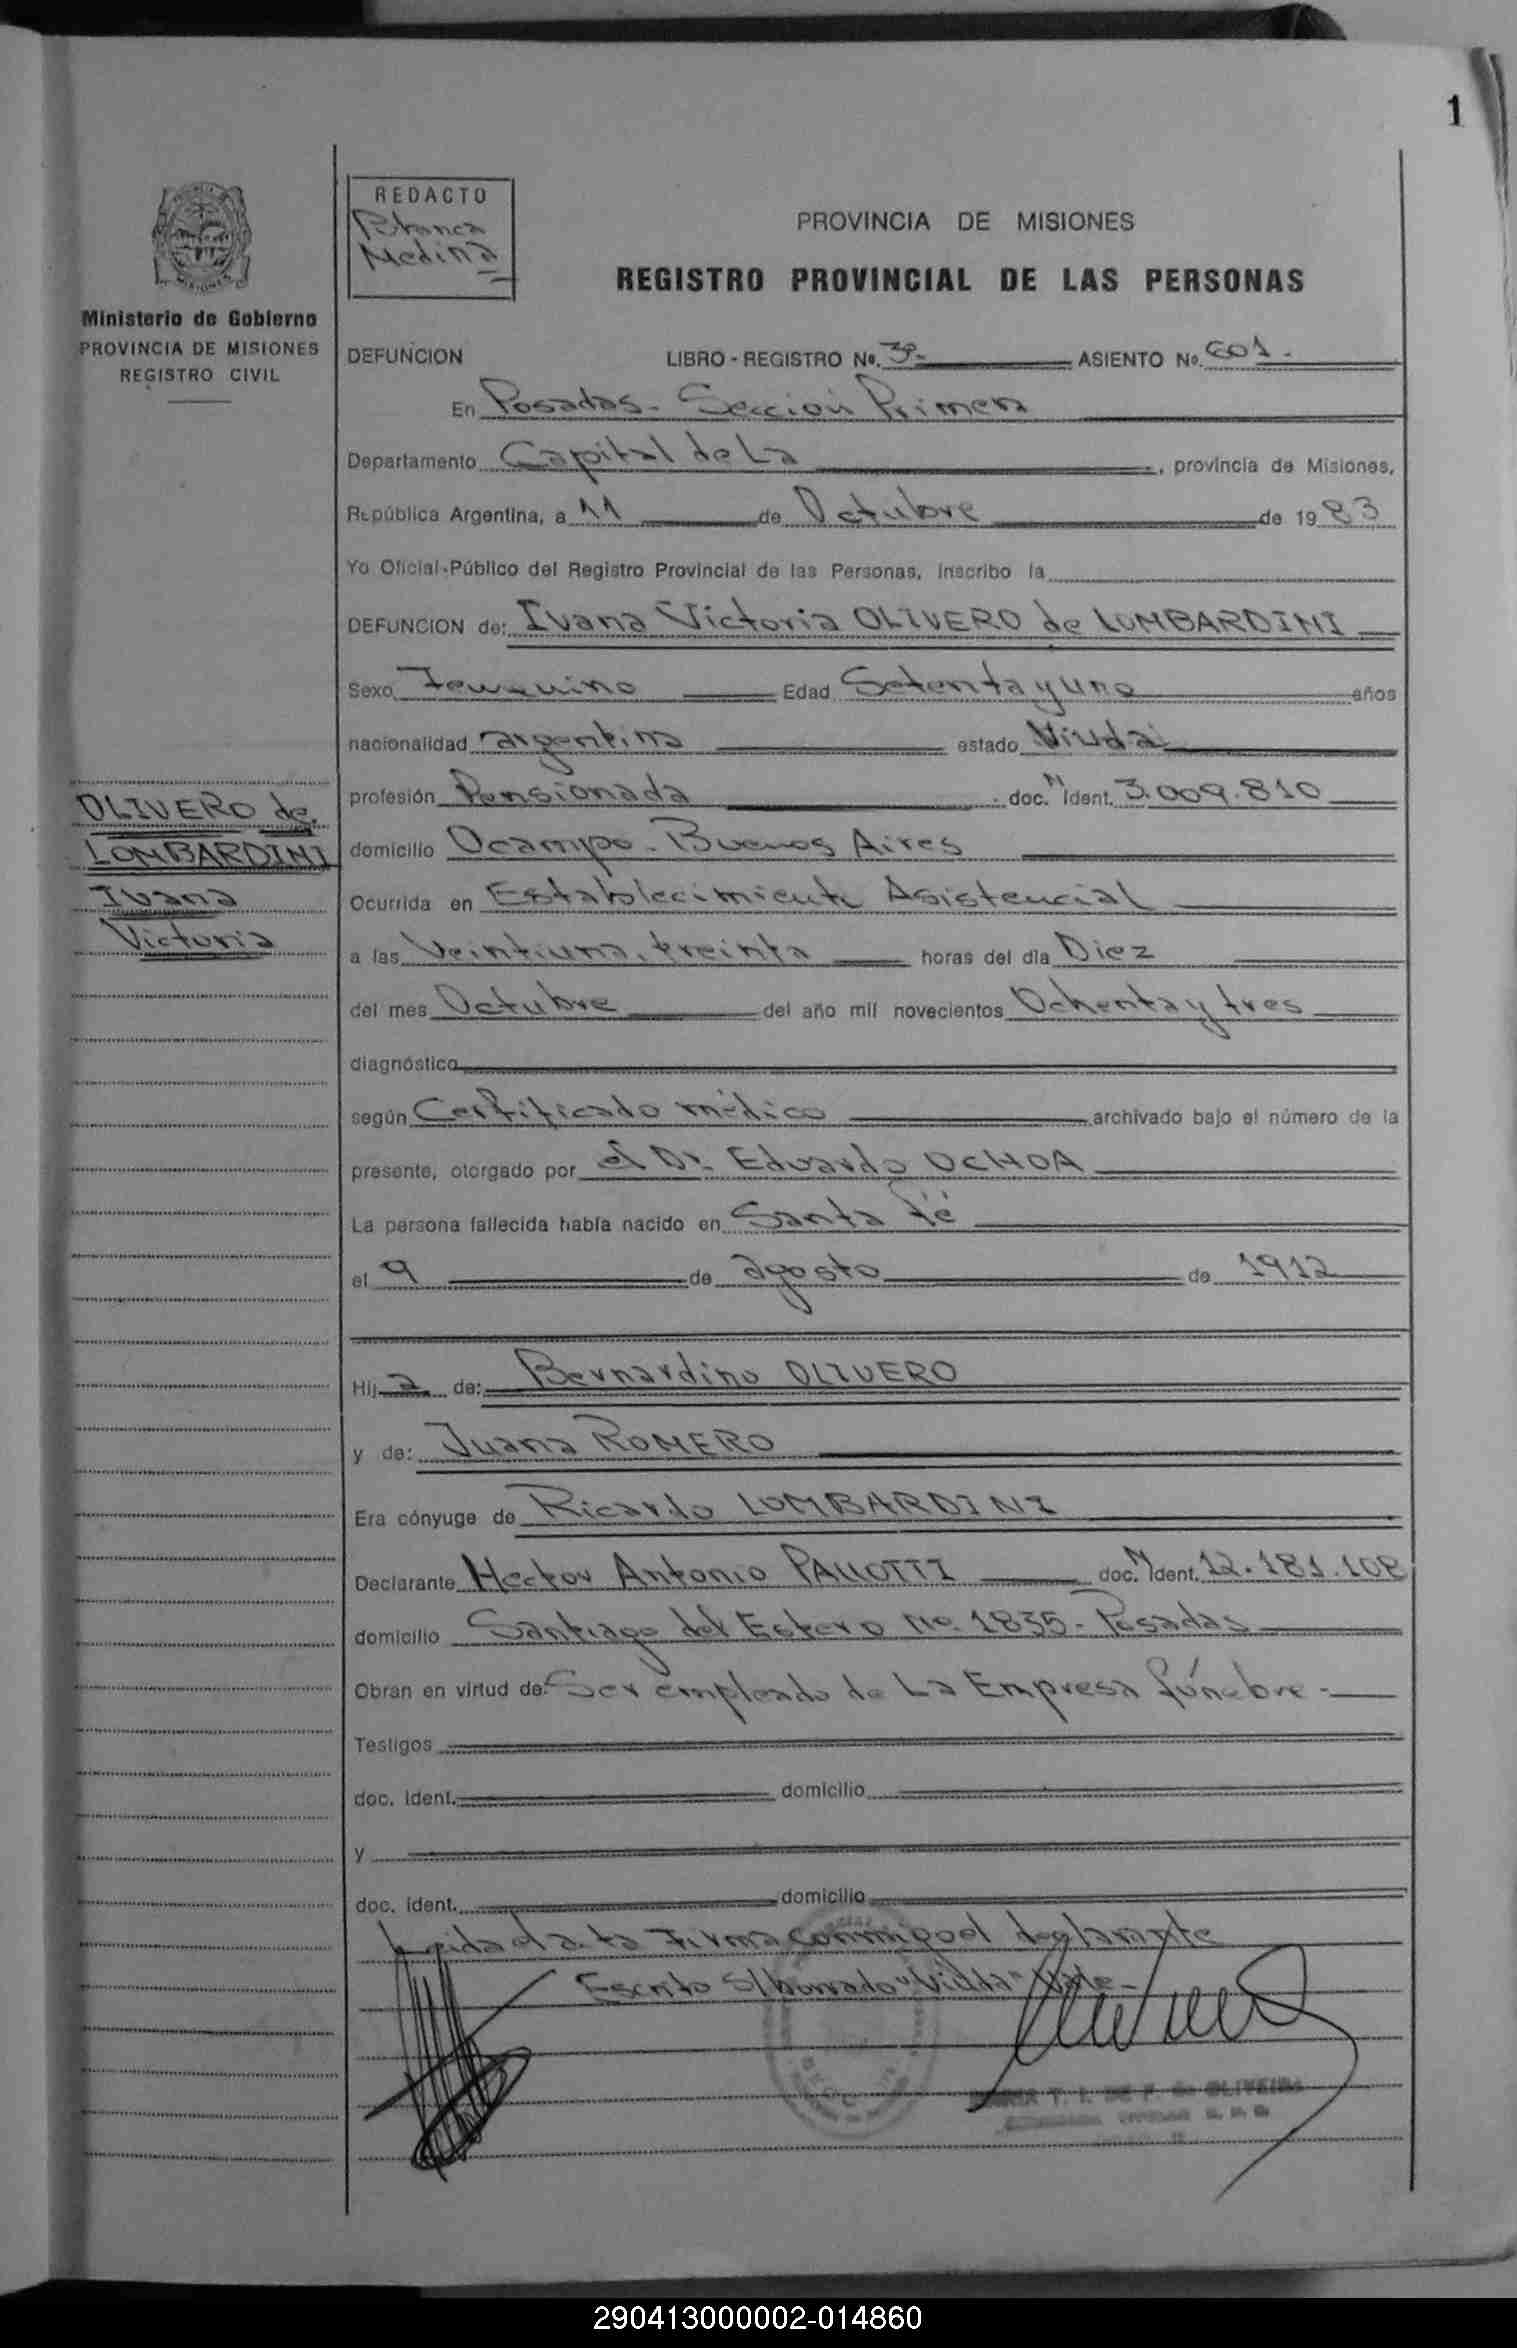 1
Ministerio de Gobierno
PROVINCIA DE MISIONES
REGISTRO CIVIL
REDACTO
Blanca
Medina
PROVINCIA DE MISIONES
REGISTRO PROVINCIAL DE LAS PERSONAS
DEFUNCION LIBRO - REGISTRO Nº. 3º- ASIENTO Nº. 601.-
En Posadas - Sección Primera
Departamento Capital de La , provincia de Misiones,
República Argentina, a 11 de Octubre de 1983
Yo Oficial-Público del Registro Provincial de las Personas, inscribo la
DEFUNCION de: Ivana Victoria OLIVERO de LOMBARDINI
Sexo Femenino Edad Setenta y uno años
nacionalidad argentina estado Viuda
profesión Pensionada doc. N Ident. 3.009.810
domicilio Ocampo - Buenos Aires
Ocurrida en Establecimiento Asistencial
a las Veintiuna, treinta horas del día Diez
del mes Octubre del año mil novecientos Ochenta y tres
diagnóstico
según Certificado médico archivado bajo el número de la
presente, otorgado por el Dr. Eduardo OCHOA
La persona fallecida había nacido en Santa fé
el 9 de agosto de 1912
Hija de: Bernardino OLIVERO
y de: Juana ROMERO
Era cónyuge de Ricardo LOMBARDINI
Declarante Hector Antonio PALLOTTI doc. N Ident. 12.181.108
domicilio Santiago del Estero No. 1835 - Posadas
Obran en virtud de: Ser empleado de La Empresa fúnebre -
Testigos
doc. Ident. domicilio
y
doc. ident. domicilio
Leida el acta Firma conmigo el declarante
Escrito S/borrado "Viuda" Vale -
T. I. DE F. de OLIVEIRA
OLIVERO de
LOMBARDINI
Ivana
Victoria
290413000002-014860